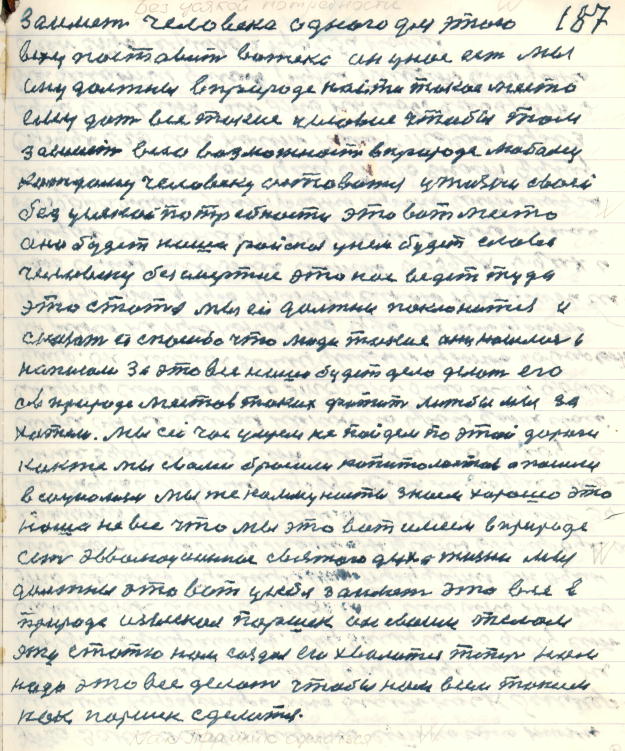 Без усякой потребности
187
займет человека одного для этого
веку поставит вотэко он унас ест мы
ему должны вприроде найти такое место
ему дат все такие условие чтобы там
займет весо возможност вприроде любому
которому человеку оставатся у жизни своей
без усякой потребности это вот место
оно будет наша райская унем будет слава
человеку бессмертие это нас ведет туда
эта статя мы ей должны поклонится и
сказат ей спасибо что люди такие они нашлис ь
написали За это все нашо будет дело делат его
с в природе местов таких фатит лижбы мы за
хотели. мы сей час умрем не пойдем по этой дороги
как же мы свами бросили капитолистов а пошли
в социолизм мы же комунисты знаем хорошо это
наша не все что мы это вот имеем вприроде
ест эвволюционное святого духа жизни мы
должны это вот усебя занимат это все в
природе изыскал паршек он своим телом
эту статю нам создал его хвалится теперь нам
надо это все делат чтобы нам всем таким
как паршек сделатся.